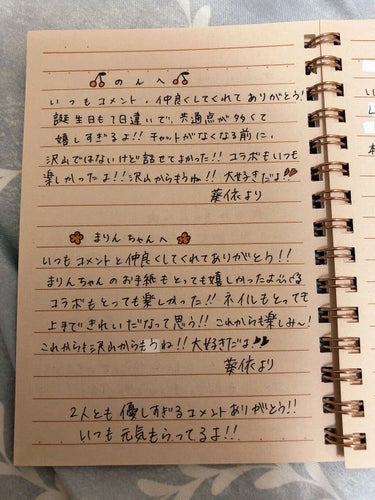 のんへ
いつもコメント・仲良くしてくれてありがとう!
誕生日も7日違いで、共通点が多くて
嬉しすぎるよ!! チャットがなくなる前に、
沢山ではないけど話せてよかった!! コラボもいつも
楽しかったよ!! 沢山からもうね!! 大好きだよ!!
葵依より
まりんちゃんへ
いつもコメントと仲良くしてくれてありがとう!!
まりんちゃんのお手紙もとっても嬉しかったよ
コラボもとっても楽しかった!! ネイルもとっても
上手できれいだなって思う!! これからも楽しみ〜!
これからも沢山からもうね!! 大好きだよ
葵依より
2人とも優しすぎるコメントありがとう!!
いつも元気もらってるよ!!